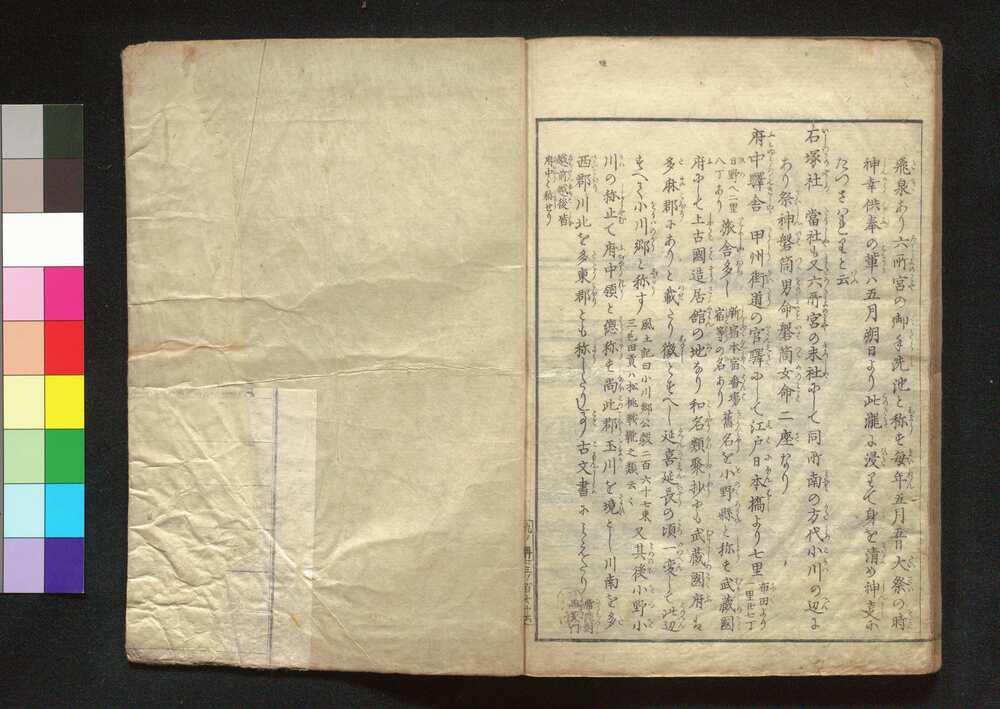 飛泉あり六所宮の御手洗池と称す毎年五月五日大祭の時
神幸供奉の輩ハ五月朔日より此瀧に浸りて身を清め神意に
と云
石塚社 當社も又六所宮の末社にして同所南の方代小川の辺に
あり祭神磐筒男命磐筒女命二座なり
府中驛舎 甲州街道の官驛にして江戸日本橋より七里 布田より 一里廿七丁
日野へ二里 八丁あり 旅舎多し 新宿本宿番場 宿等の名あり 舊名を小野縣と称す武蔵國
府にして上古國造居館の地なり和名類聚抄にも武蔵國府は
多麻郡にありと載たり徴とすへし延喜延長の頃一変して此辺
すへて小川郷と称す 風土記曰小川郷公穀二百六十七束 三毛田貢ハ松桃 之類云々 又其後小野小
川の称止て府中領と惣称す尚此郡玉川を境とし川南を多
西郡川北を多東郡とも称したりしより古文書に見えたり
越前越後皆
府中と称せり